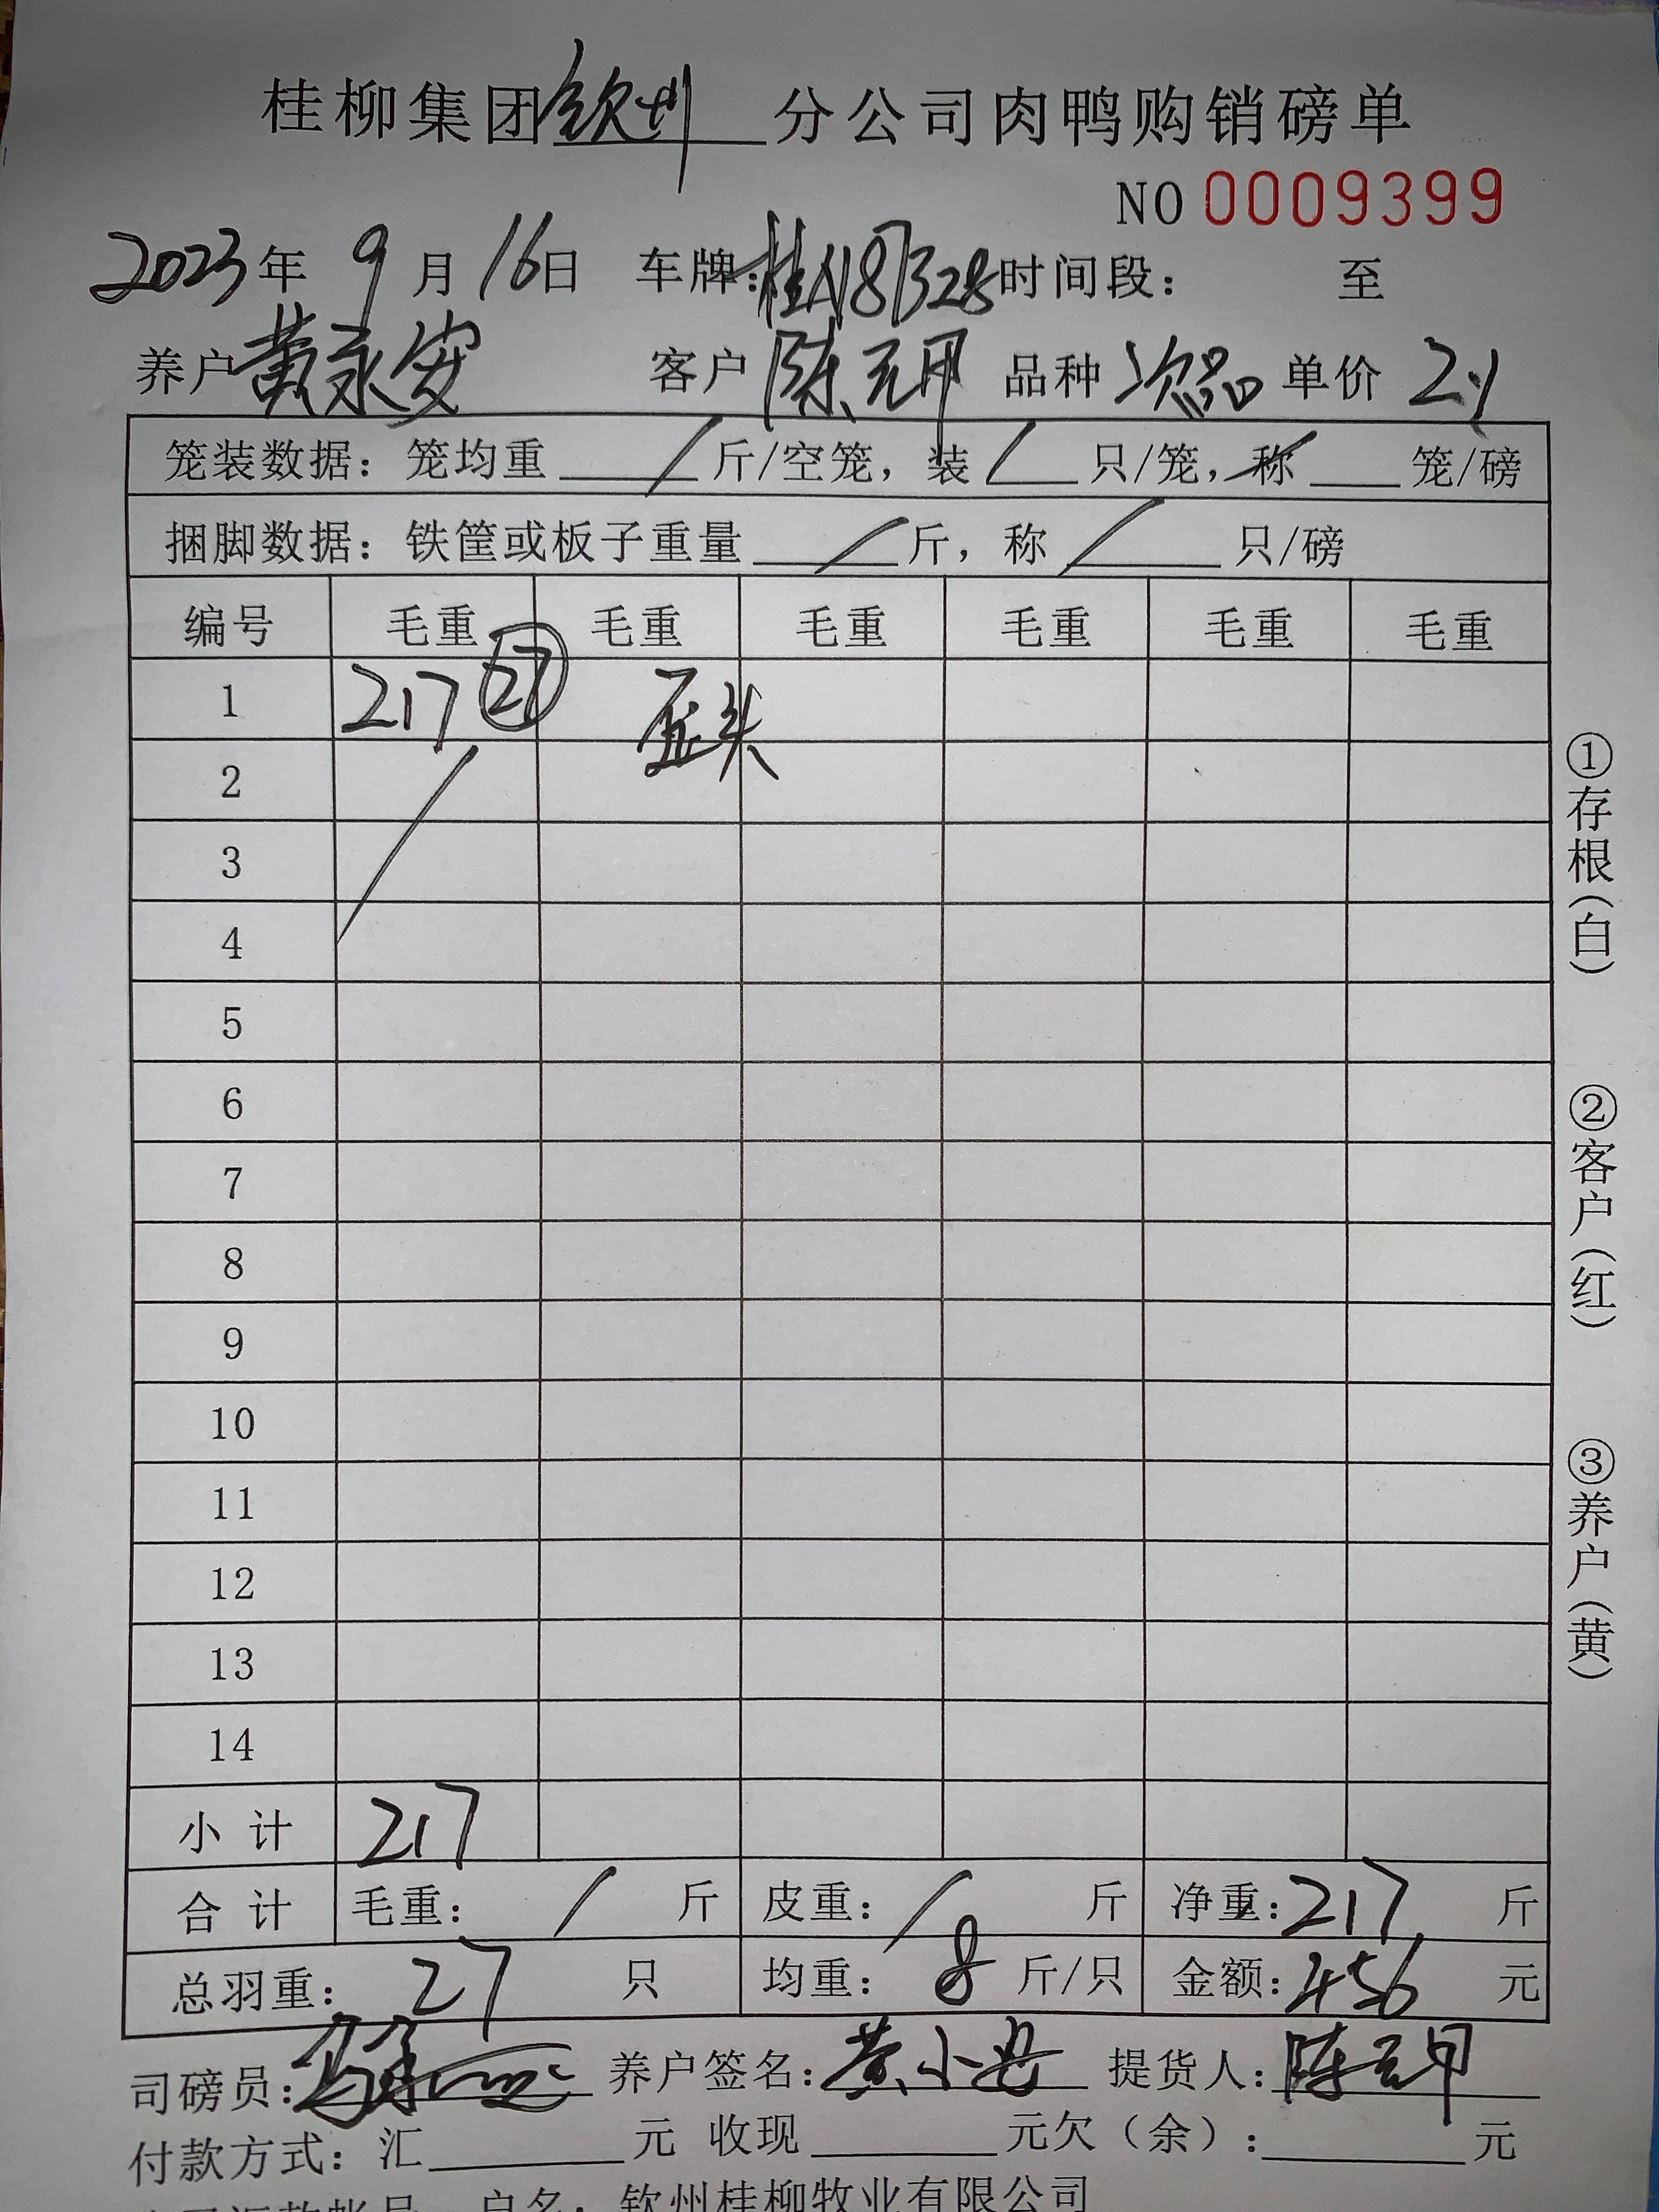 桂柳集团钦州分公司肉鸭购销磅单
NO 0009399
2023年 9月 16日 车牌:桂N87328 时间段: 至
养户 黄永安 客户 陈元甲 品种 次品 单价 2.1
笼装数据: 笼均重 / 斤/空笼, 装 / 只/笼, 称 / 笼/磅
捆脚数据: 铁筐或板子重量 / 斤, 称 / 只/磅
编号 毛重 毛重 毛重 毛重 毛重 毛重
1 217 27 歪头
2
3
4
5
6
7
8
9
10
11
12
13
14
小计 217
合计 毛重: / 斤 皮重: / 斤 净重: 217 斤
总羽重: 27 只 均重: 8 斤/只 金额: 456 元
司磅员: 养户签名: 黄小丹 提货人: 陈元甲
付款方式: 汇 元 收现 元欠(余): 元
户名: 钦州桂柳牧业有限公司
①存根(白)
②客户(红)
③养户(黄)